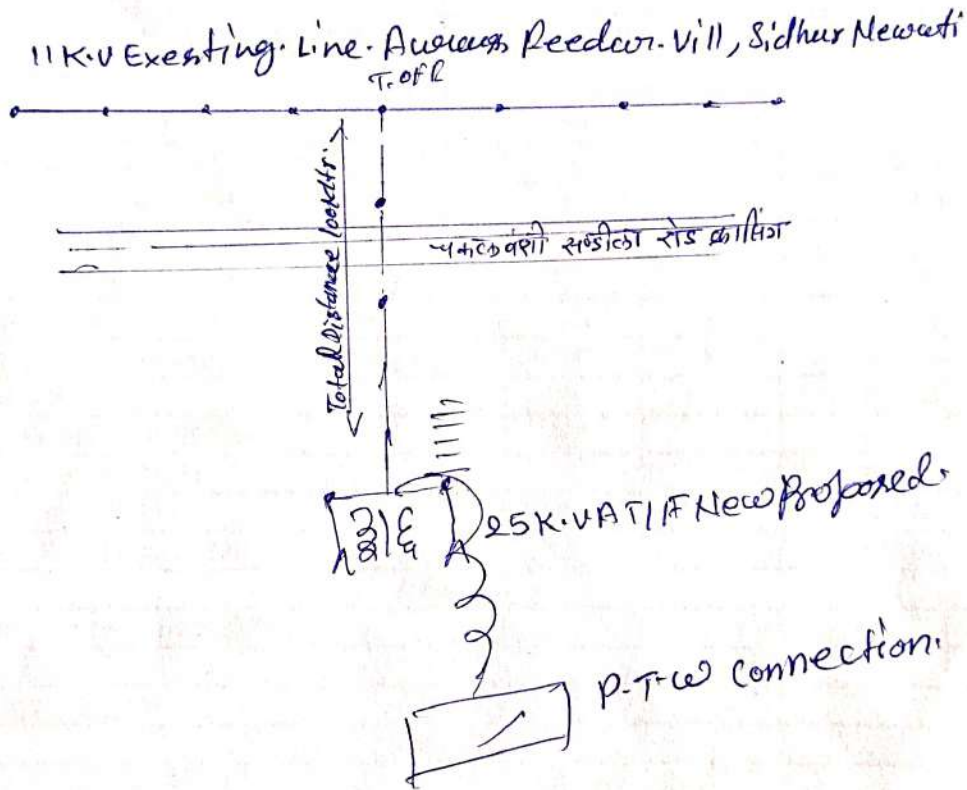 11 K.V Exesting. Line. Auraas Feedar. Vill, Sidhur Newati
T. OFF
Total Distance 100Mtr.
चकलवंशी सण्डीला रोड क्रासिंग
25 K.V A T/F New Proposed.
P.T.W Connection.